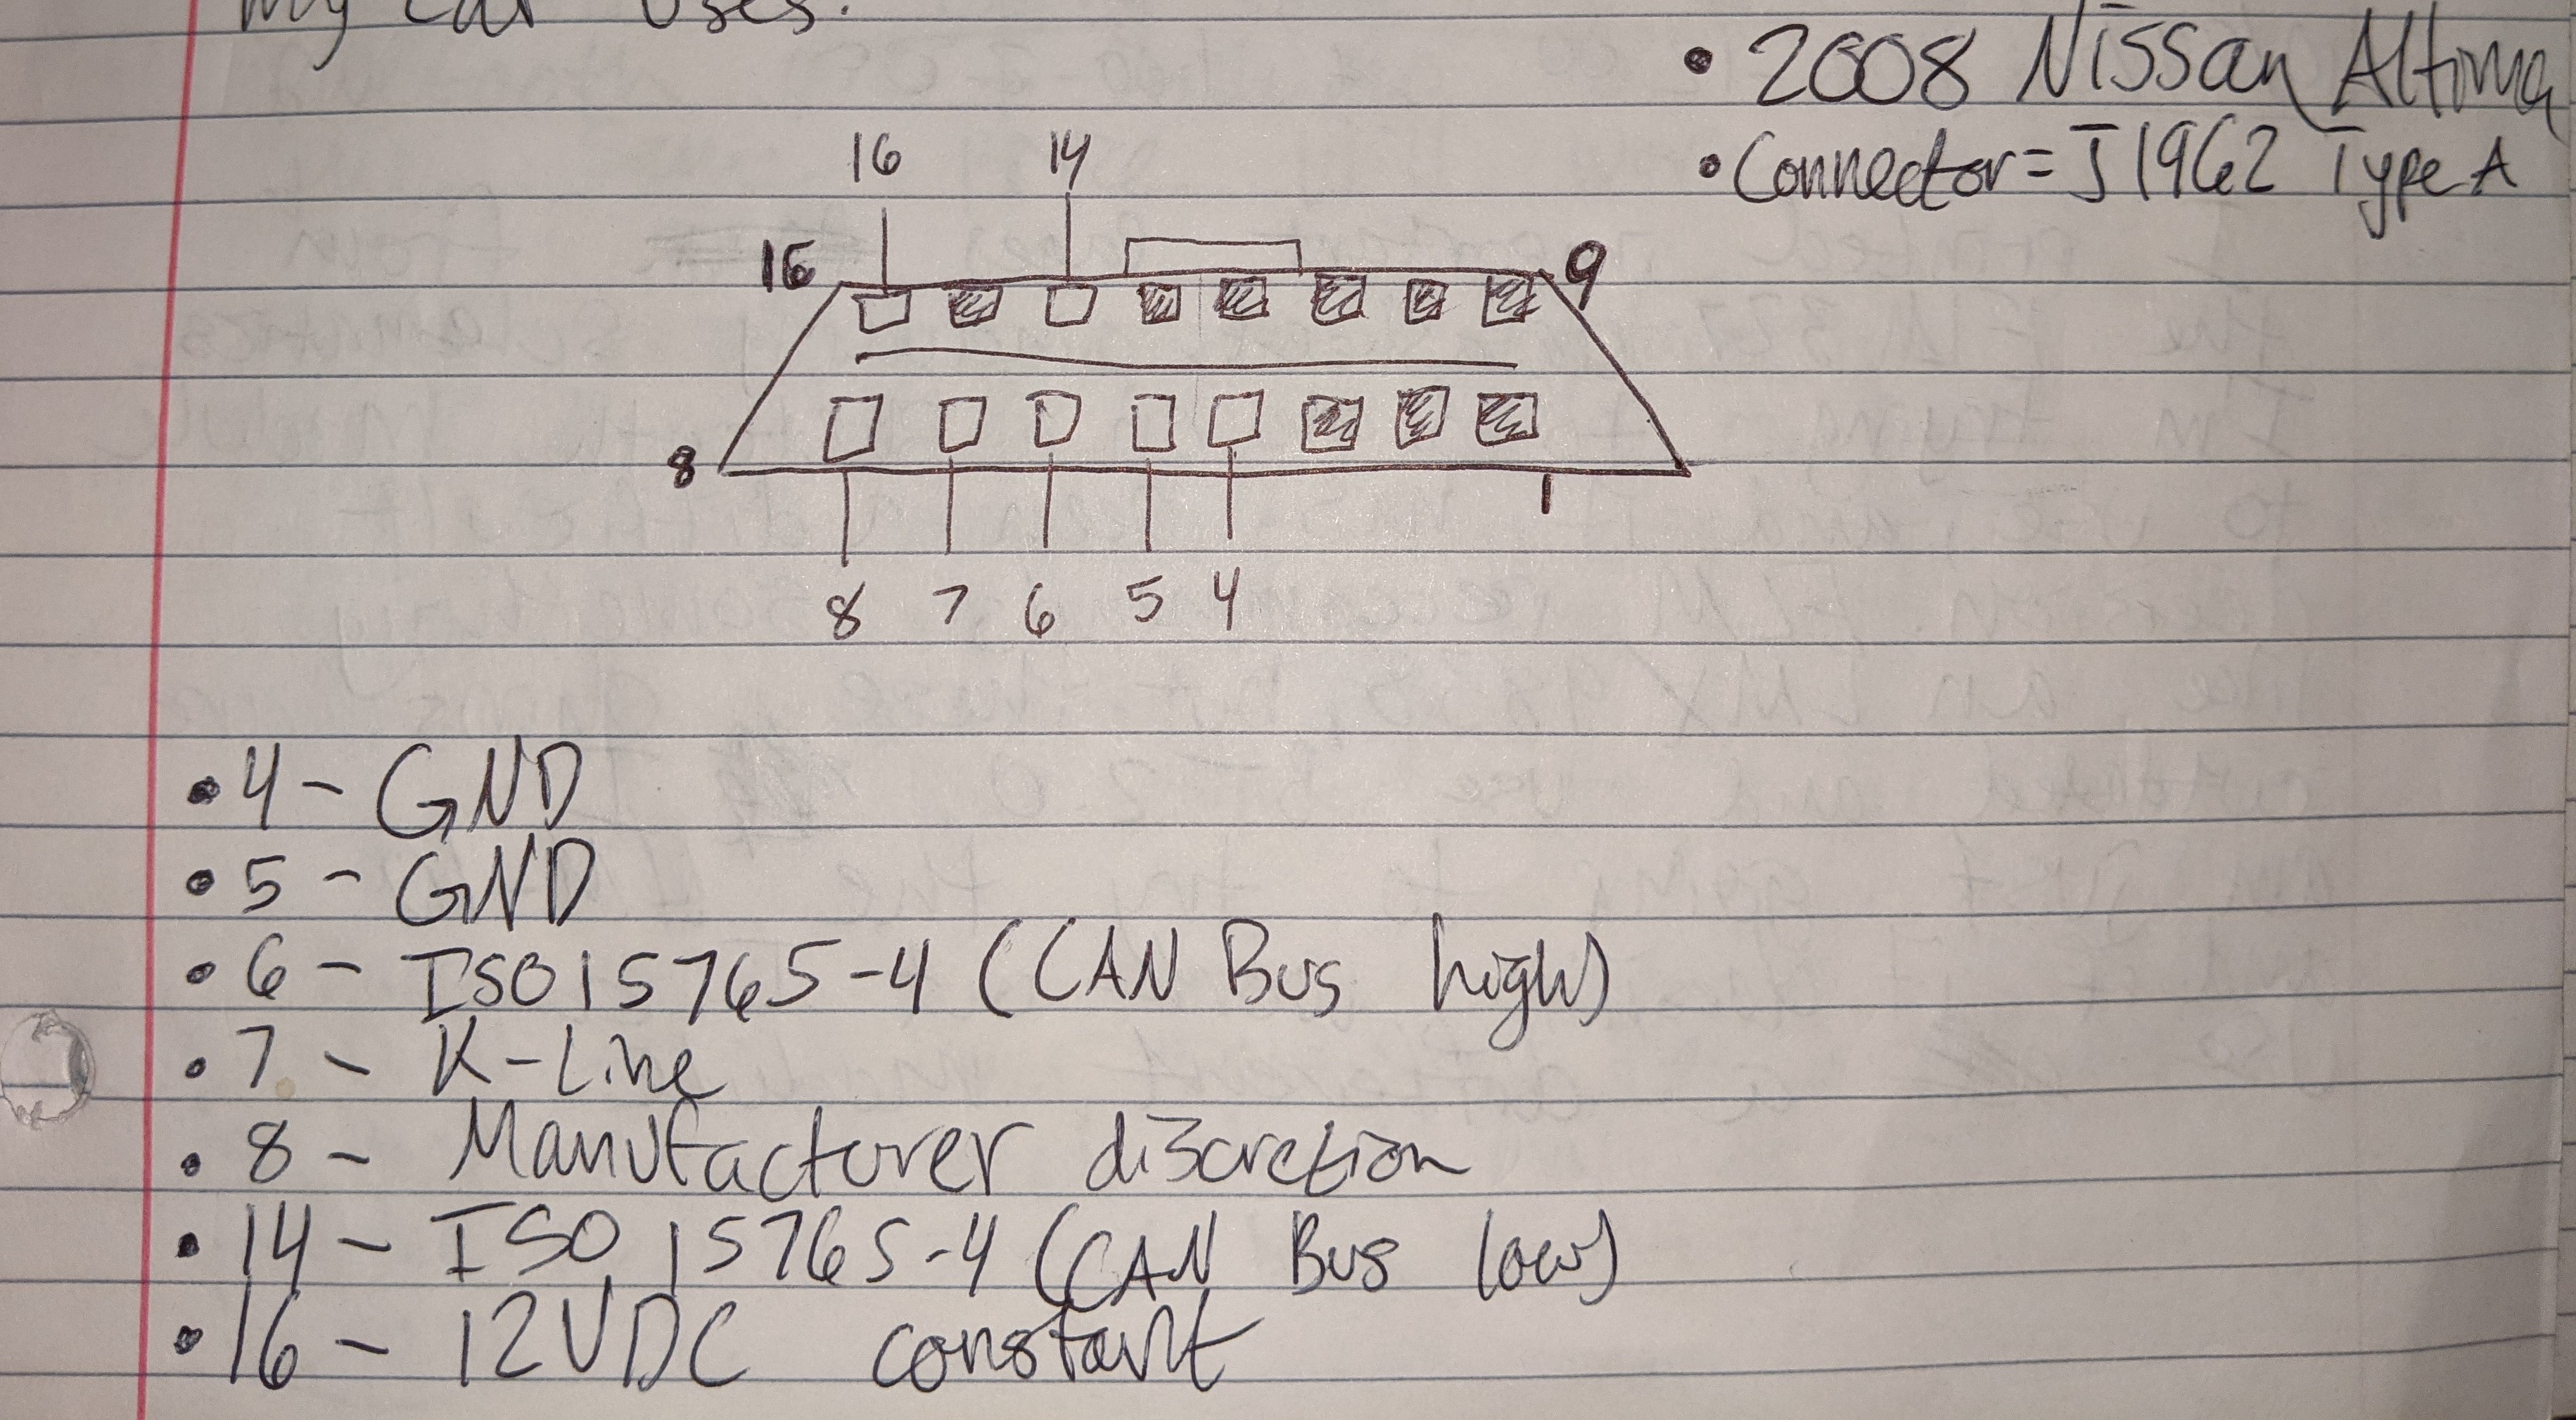 my car uses:
• 2008 Nissan Altima
• Connector = J1962 Type A
16 14
16 9
8 1
8 7 6 5 4
• 4 - GND
• 5 - GND
• 6 - ISO15765-4 (CAN Bus high)
• 7 - K-Line
• 8 - Manufacturer discretion
• 14 - ISO 15765-4 (CAN Bus low)
• 16 - 12VDC constant